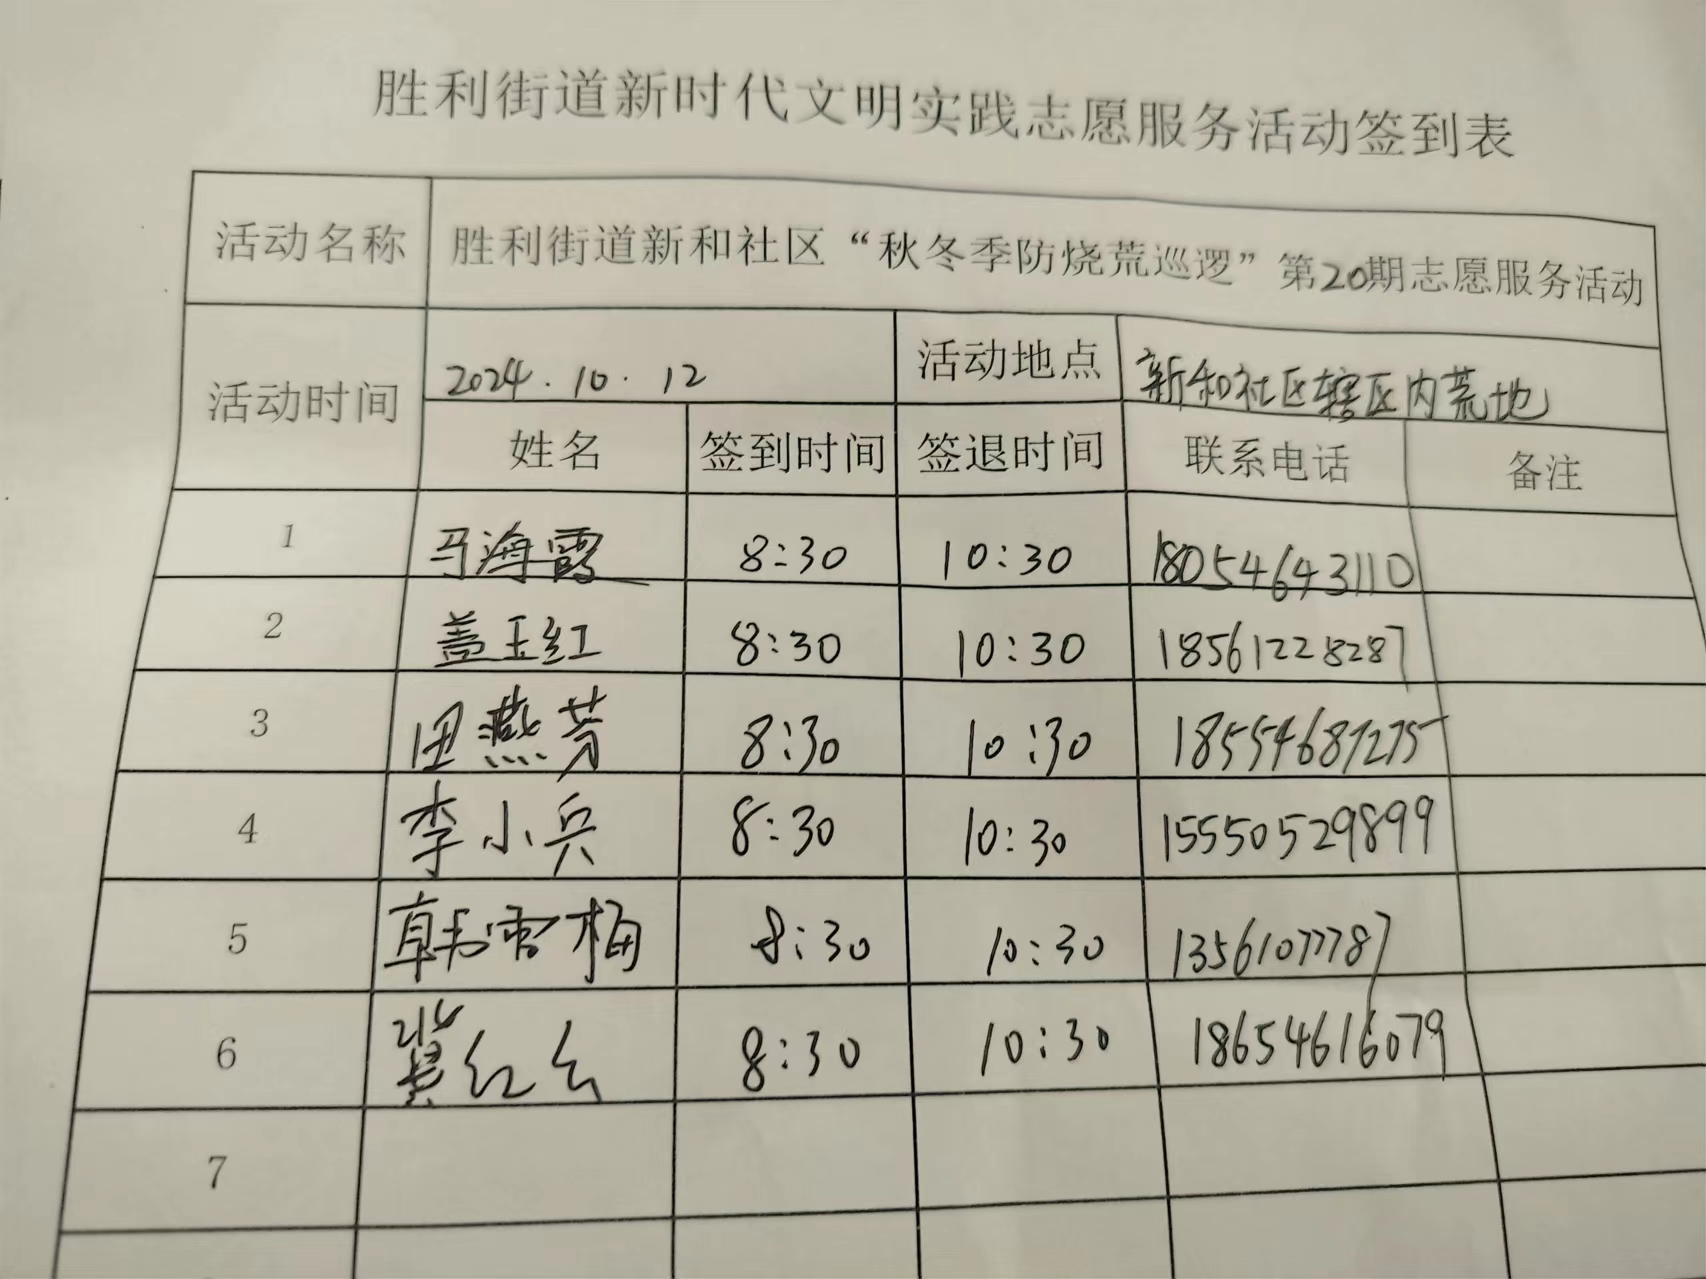 胜利街道新时代文明实践志愿服务活动签到表
活动名称 胜利街道新和社区“秋冬季防烧荒巡逻”第20期志愿服务活动
活动时间 2024.10.12 活动地点 新和社区辖区内荒地
姓名 签到时间 签退时间 联系电话 备注
1 马海霞 8:30 10:30 18054643110
2 盖玉红 8:30 10:30 18561228287
3 田燕芳 8:30 10:30 18554687275
4 李小兵 8:30 10:30 15550529899
5 韩雪梅 8:30 10:30 13561077787
6 冀红云 8:30 10:30 18654616079
7